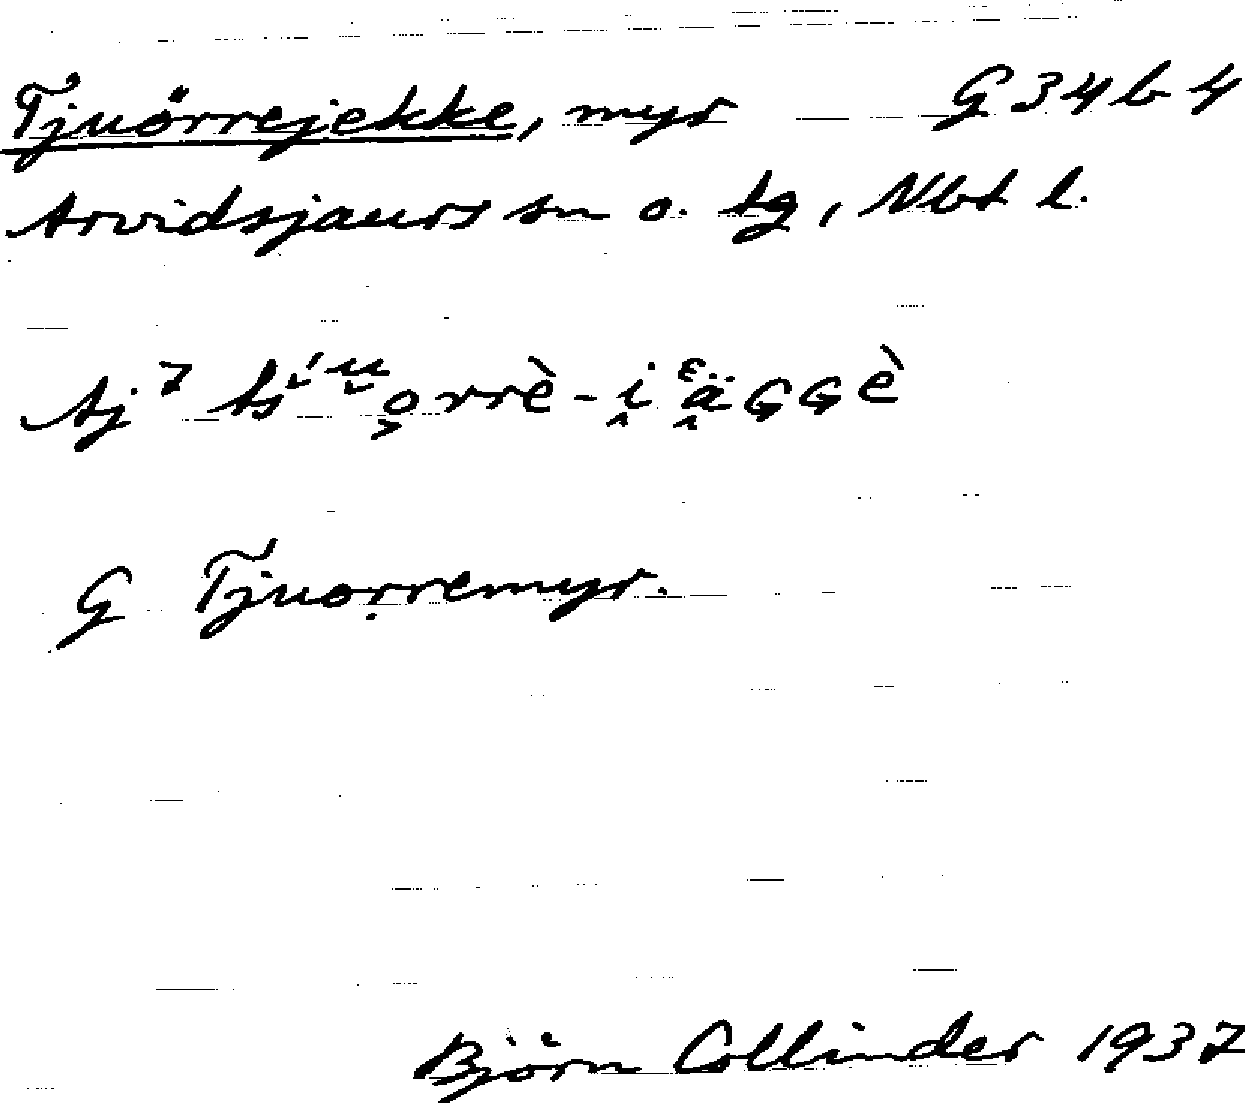 Tjuorrejekke, myr G 34 b 4
Arvidsjaurs sn o. tg, Nbt l.
Aj 7
G Tjuọrremyr.
Björn Collinder 1937